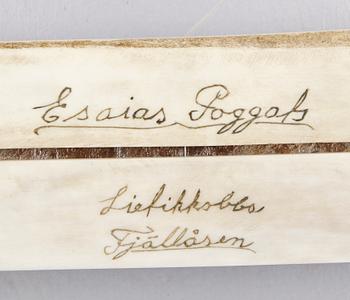 Esaias Poggats
Liefikksbbs
Fjällåsen